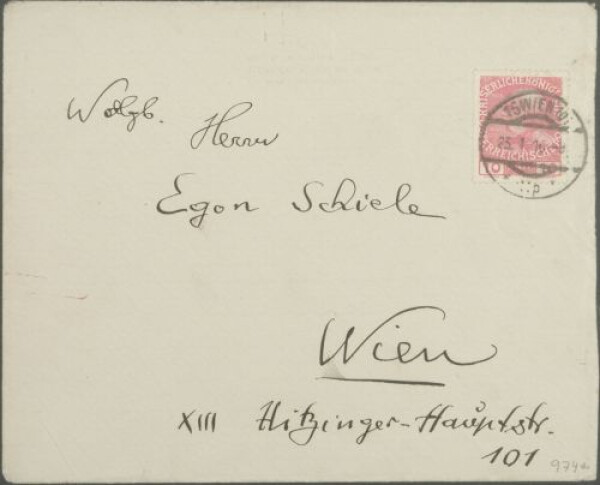 Wolgb.
Herrn
Egon Schiele
Wien
XIII Hitzinger-Hauptstr.
101
974
KAISERLICHE KÖNIGL
ÖSTERREICHISCHE
10
WIEN